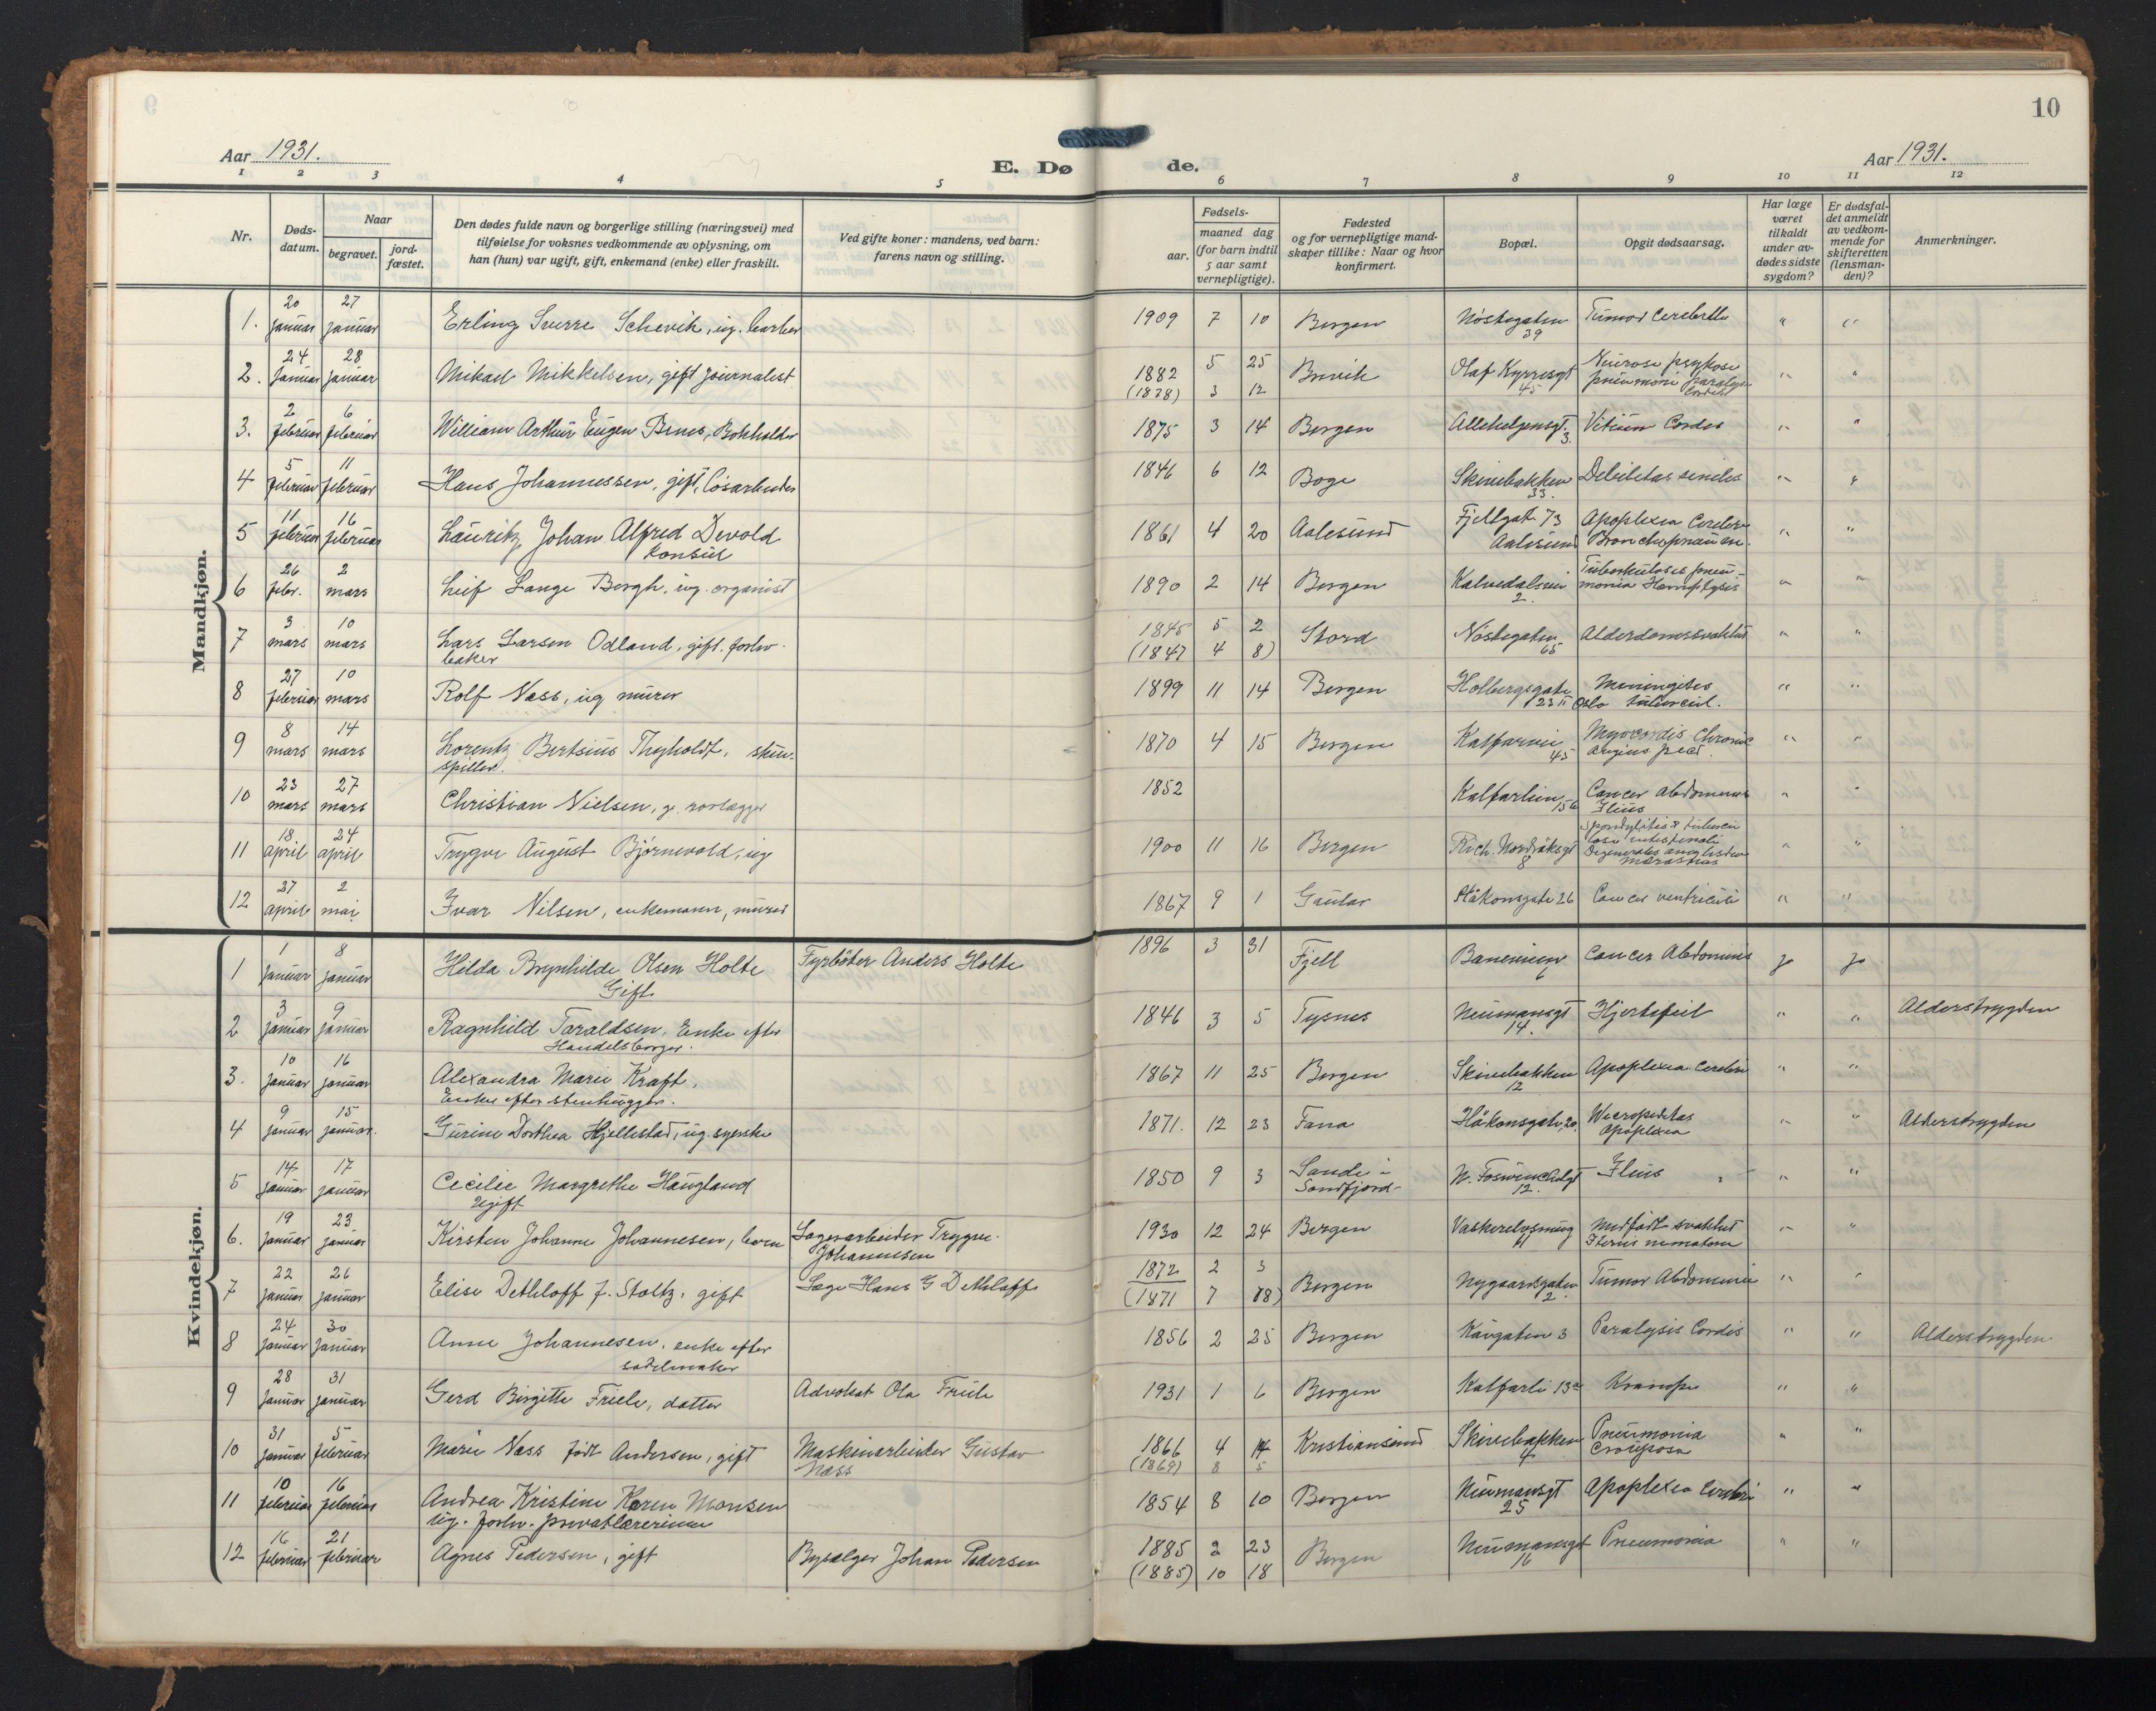 10
Aar 1931.
E. Dø de.
Aar 1931.
1 2 3 4 5 6 7 8 9 10 11 12
Nr.
Døds-
datum.
Naar
begravet.
jord-
fæstet.
Den dødes fulde navn og borgerlige stilling (næringsvei) med
tilføielse for voksnes vedkommende av oplysning, om
han (hun) var ugift, gift, enkemand (enke) eller fraskilt.
Ved gifte koner: mandens, ved barn:
farens navn og stilling.
Fødsels-
aar.
maaned dag
(for barn indtil
5 aar samt
vernepligtige).
Fødested
og for vernepligtige mand-
skaper tillike: Naar og hvor
konfirmert.
Bopæl.
Opgit dødsaarsag.
Har læge
været
tilkaldt
under av-
dødes sidste
sygdom?
Er dødsfal-
det anmeldt
av vedkom-
mende for
skifteretten
(lensman-
den)?
Anmerkninger.
Mandkjøn.
1. 20 januar 27 januar Erling Sverre Schevik, ug. barber 1909 7 10 Bergen Nöstegaten 39 Tumor Cerebelli " "
2. 24 januar 28 januar Mikael Mikkelsen, gift journalist 1882 5 25 (1878) 3 12 Brevik Olaf Kyrresgt 45 Neurose psykose pneumoni paralys. cordis " "
3. 2 februar 6 februar William Arthur Eugen Bens, Bokholder 1875 3 14 Bergen Allehelgensgt. 3. Vitium Cordis " "
4 5 februar 11 februar Hans Johannessen, gift, lösarbeider 1846 6 12 Boge Skivebakken 33. Debilitas senilis " "
5 11 februar 16 februar Lauritz Johan Alfred Devold
konsul 1861 4 20 Aalesund Fjellgat. 73 Aalesund Apoplexia Cerebri Bronchopneumon. " "
6 26 febr. 2 mars Leif Lange Bergh, ug. organist 1890 2 14 Bergen Kalvedalsvei 2. Tuberkulosis pneu-
monia Hemoptysis " "
7 3 mars 10 mars Lars Larsen Odland, gift. forhv.
baker 1845 5 2 (1847 4 8) Stord Nöstegaten 65 Alderdomssvakhet " "
8 27 februar 10 mars Rolf Næss, ug murer 1899 11 14 Bergen Holbergsgate 23 II Oslo Meningitis tubercul. " "
9 8 mars 14 mars Lorentz Bertsius Thyholdt, skue-
spiller. 1870 4 15 Bergen Kalfarvei 45 Myocardis Chronic angina pect. " "
10 23 mars 27 mars Christian Nielsen, g. rörlægger 1852 Kalfarlien 15 b Cancer Abdominis Ileus " "
11 18 april 24 april Trygve August Björnevold, ug 1900 11 16 Bergen Rich. Nordråksgt 8 Spondylitis & tubercu
losa intestinali " "
marasmus
12 27 april 2 mai Ivar Nilsen, enkemann, murer 1867 9 1 Gaular Håkonsgate 26 Cancer ventriculi " "
Kvindekjøn.
1 1 januar 8 januar Hilda Brynhilde Olsen Holte
Gift Fyrböter Anders Holte 1896 3 31 Fjell Baneveien 6 Cancer Abdominis ja ja
2 3 januar 9 januar Ragnhild Taraldsen, Enke efter
Handelsborger. 1846 3 5 Tysnes Neumansgt 14. Hjertefeil " " Alderstrygden
3. 10 januar 16 januar Alexandra Marie Kraft,
Enke efter stenhugger. 1867 11 25 Bergen Skivebakken 12 Apoplexia Cerebri " "
4 9 januar 15 januar. Gurine Dorthea Hjellestad, ug. syerske 1871. 12 23 Fana Håkonsgate 20. Apoplexia " " Alderstrygden
5 14 januar 17 januar Cecilie Margrethe Haugland
Ugift 1850 9 3 Sande i Sondfjord N. Foswinckelsgt 12. Ileus " "
6. 19 januar 23 januar Kirsten Johanne Johannesen, barn Lagerarbeider Trygve
Johannesen 1930 12 24 Bergen Vaskerelvsmug 11 medfödt svakhet " "
7 22 januar 26 januar Elise Dethloff f. Stoltz, gift Læge Hans G Dethloff 1872 2 3 (1871 7 18) Bergen Nygaardsgaten 2. Tumor Abdominis " "
8 24 januar 30 januar Anne Johannesen, enke efter
sadelmaker 1856 2 25 Bergen Kaugaten 3 Paralysis Cordis " " Alderstrygden
9 28 januar 31 januar Gerd Birgitte Friele, datter Advokat Ola Friele 1931 1 6 Bergen Kalfarli 13 a Krampe " "
10 31 januar 5 februar Marie Næss födt Andersen, gift Maskinarbeider Gustav
Næss 1866 4 14 (1869) 8 5 Kristiansund Skivebakken 4 Pneumonia Crouposa " "
11 10 februar 16 februar Andrea Kristine Karen Monsen
ug. forhv. privatlærerinne 1854 8 10 Bergen Neumansgt 25 Apoplexia Cerebri " "
12 16 februar 21 februar Agnes Pedersen, gift Byselger Johan Pedersen 1885 2 23 (1885) 10 18 Bergen Neumansgt 16 Pneumonia " "